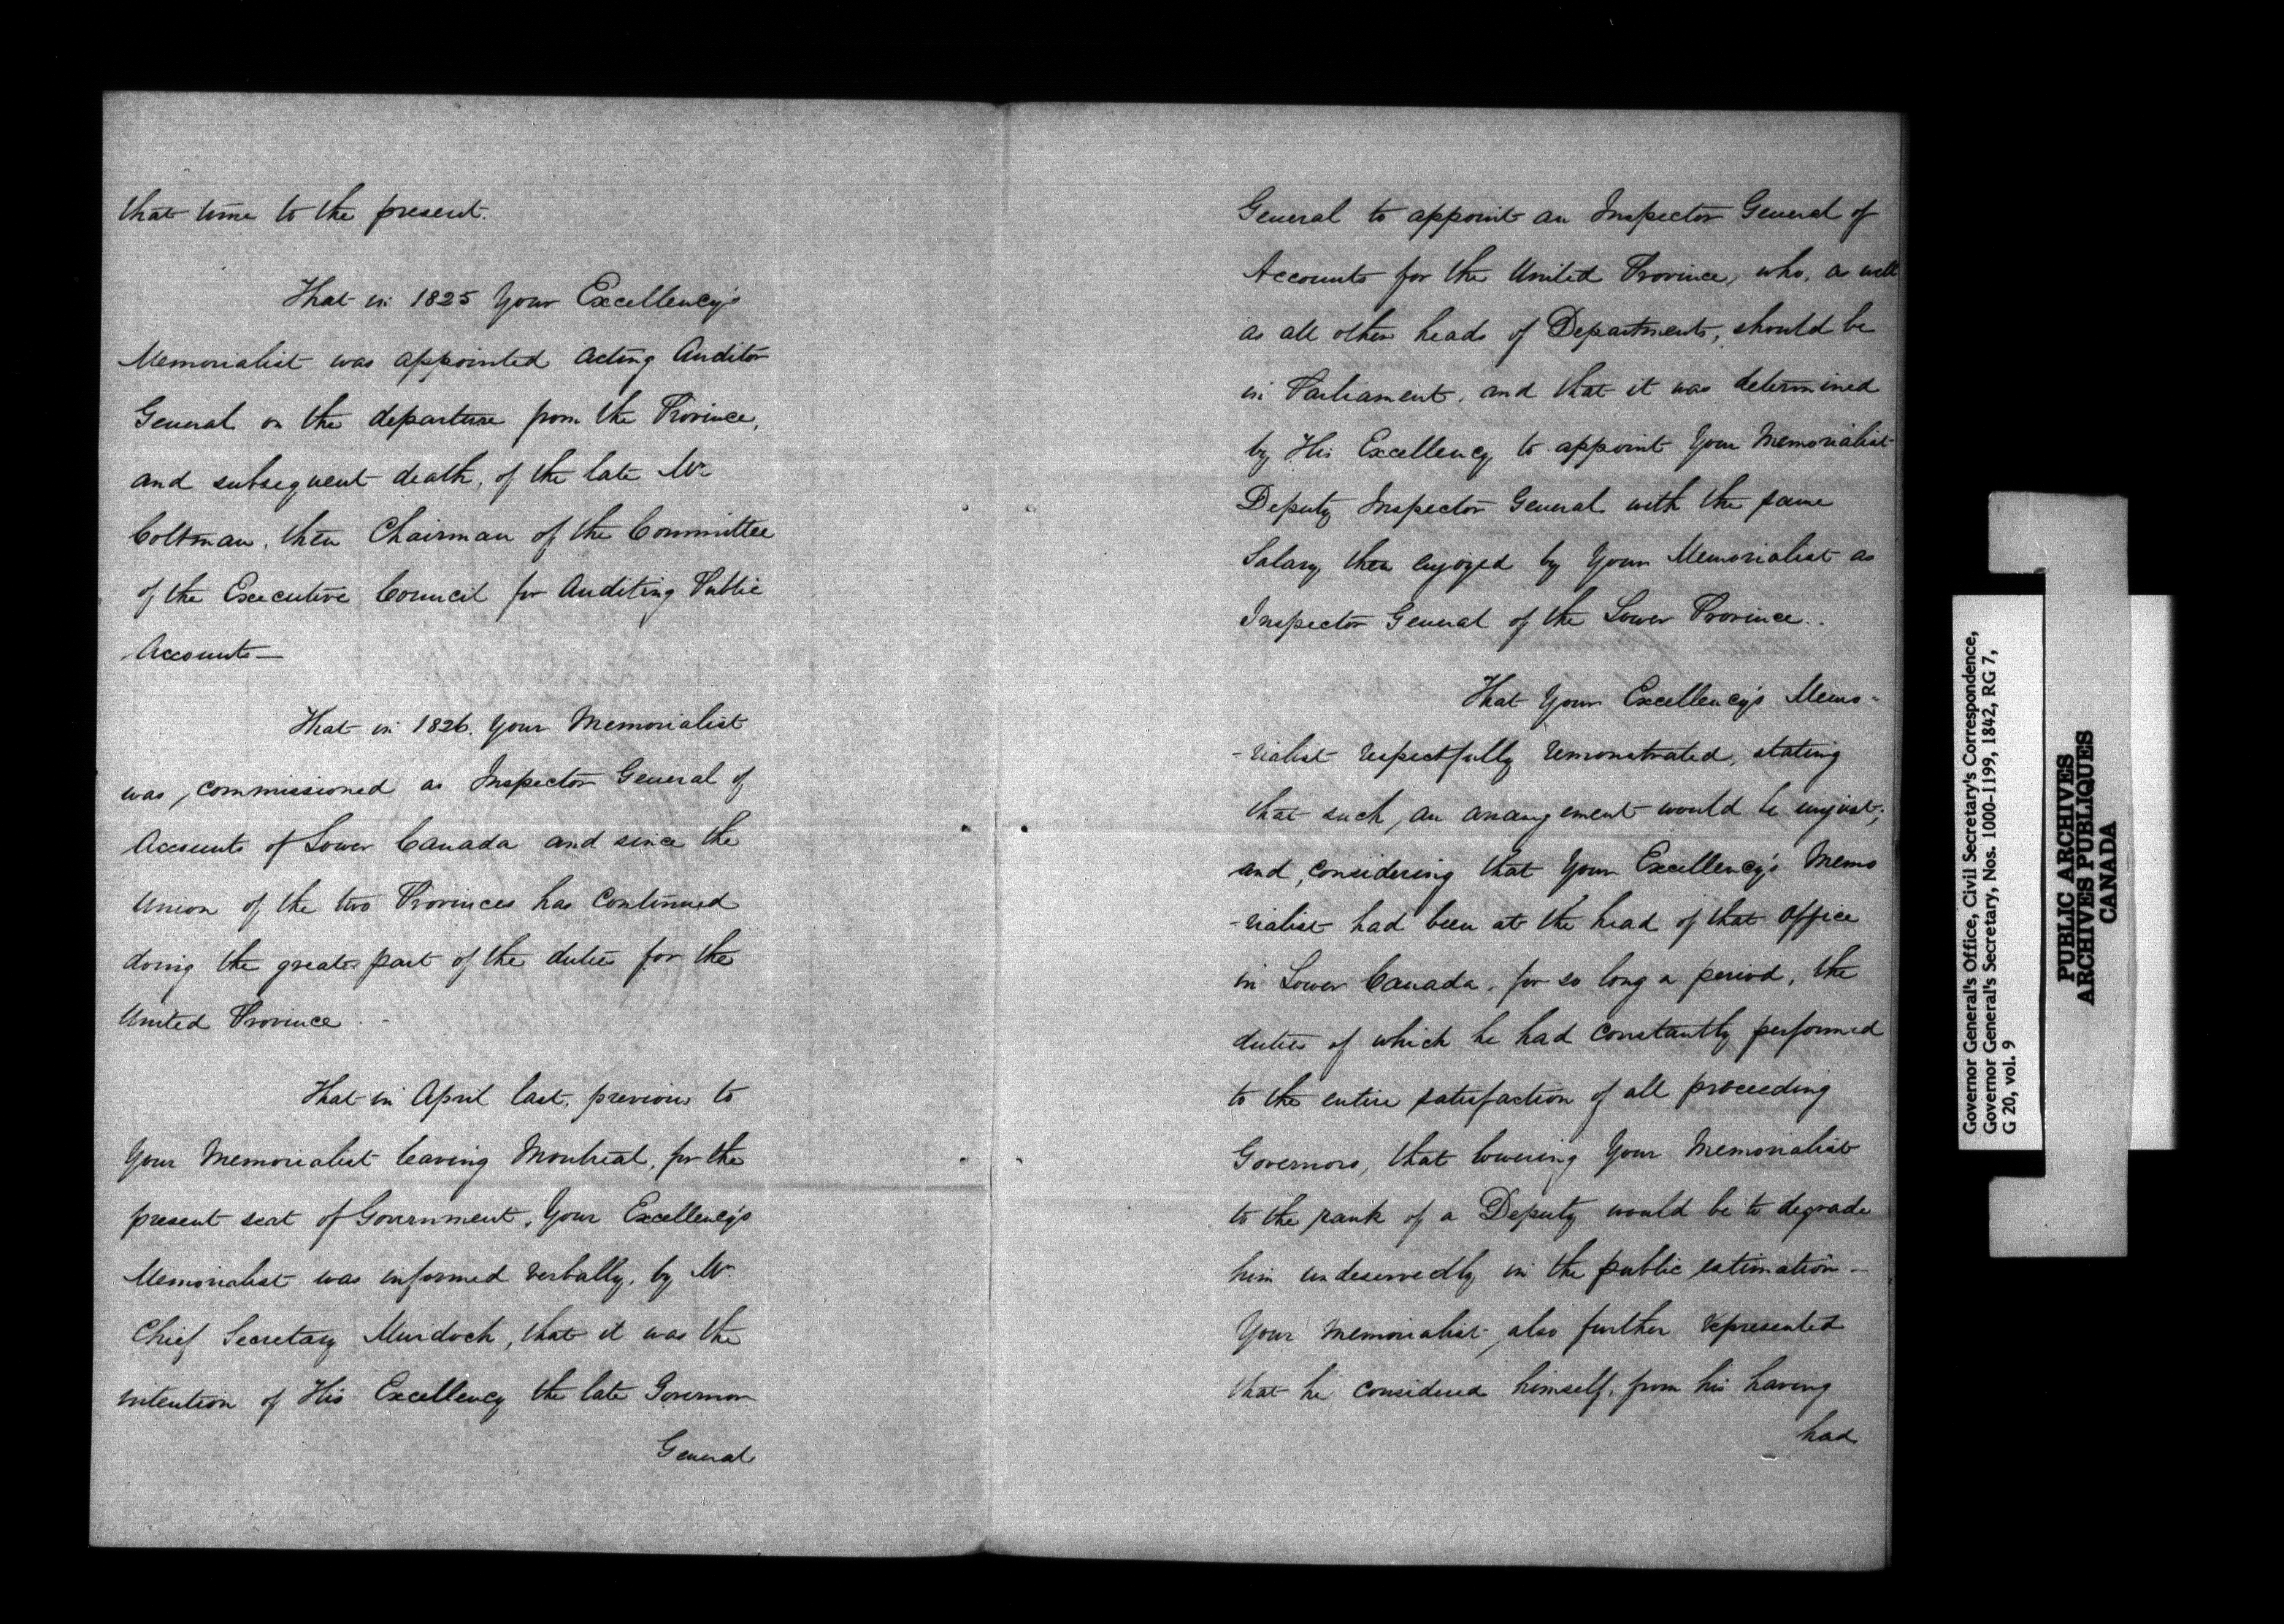 that time to the present.
That in 1825 Your Excellency's
Memorialist was appointed acting Auditor
General on the departure from the Province,
and subsequent death, of the late Mr
Coltman, then Chairman of the Committee
of the Executive Council for Auditing Public
Accounts —
That in 1826. Your Memorialist
was, commissioned as Inspector General of
Accounts of Lower Canada and since the
Union of the two Provinces has continued
doing the greater part of the duties for the
United Province . -
That in April last, previous to
Your Memorialist leaving Montreal, for the
present seat of Government, Your Excellency's
Memorialist was informed verbally, by Mr.
Chief Secretary Murdoch, that it was the
intention of His Excellency the late Governor
General
General to appoint an Inspector General of
Accounts for the United Province, who, as well
as all other heads of Departments, should be
in Parliament, and that it was determined
by His Excellency to appoint Your Memorialist
Deputy Inspector General with the same
Salary then enjoyed by Your Memorialist as
Inspector General of the Lower Province..
That Your Excellency's Memo-
-rialist respectfully remonstrated, stating
that such, an arrangement would be unjust;
and, considering that Your Excellency's Memo
-rialist had been at the head of that Office
in Lower Canada, for so long a period, the
duties of which he had constantly performed
to the entire satisfaction of all preceeding
Governors, that lowering Your Memorialist
to the rank of a Deputy would be to degrade
him undeservedly in the public estimation —
Your Memorialist, also further represented
that he considered himself, from his having
had
Governor General's Office, Civil Secretary's Correspondence,
Governor General's Secretary, Nos. 1000-1199, 1842, RG 7,
G 20, vol. 9
PUBLIC ARCHIVES
ARCHIVES PUBLIQUES
CANADA